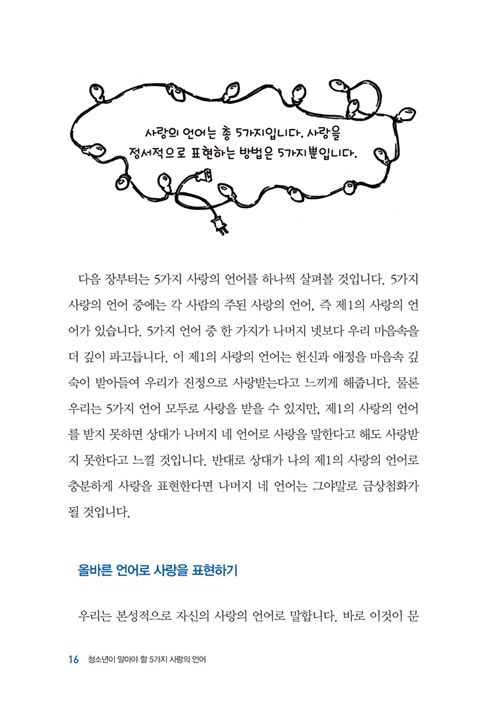 사랑의 언어는 총 5가지입니다. 사랑을
정서적으로 표현하는 방법은 5가지뿐입니다.
다음 장부터는 5가지 사랑의 언어를 하나씩 살펴볼 것입니다. 5가지
사랑의 언어 중에는 각 사람의 주된 사랑의 언어, 즉 제1의 사랑의 언
어가 있습니다. 5가지 언어 중 한 가지가 나머지 넷보다 우리 마음속을
더 깊이 파고듭니다. 이 제1의 사랑의 언어는 헌신과 애정을 마음속 깊
숙이 받아들여 우리가 진정으로 사랑받는다고 느끼게 해줍니다. 물론
우리는 5가지 언어 모두로 사랑을 받을 수 있지만, 제1의 사랑의 언어
를 받지 못하면 상대가 나머지 네 언어로 사랑을 말한다고 해도 사랑받
지 못한다고 느낄 것입니다. 반대로 상대가 나의 제1의 사랑의 언어로
충분하게 사랑을 표현한다면 나머지 네 언어는 그야말로 금상첨화가
될 것입니다.
올바른 언어로 사랑을 표현하기
우리는 본성적으로 자신의 사랑의 언어로 말합니다. 바로 이것이 문
16 청소년이 알아야 할 5가지 사랑의 언어